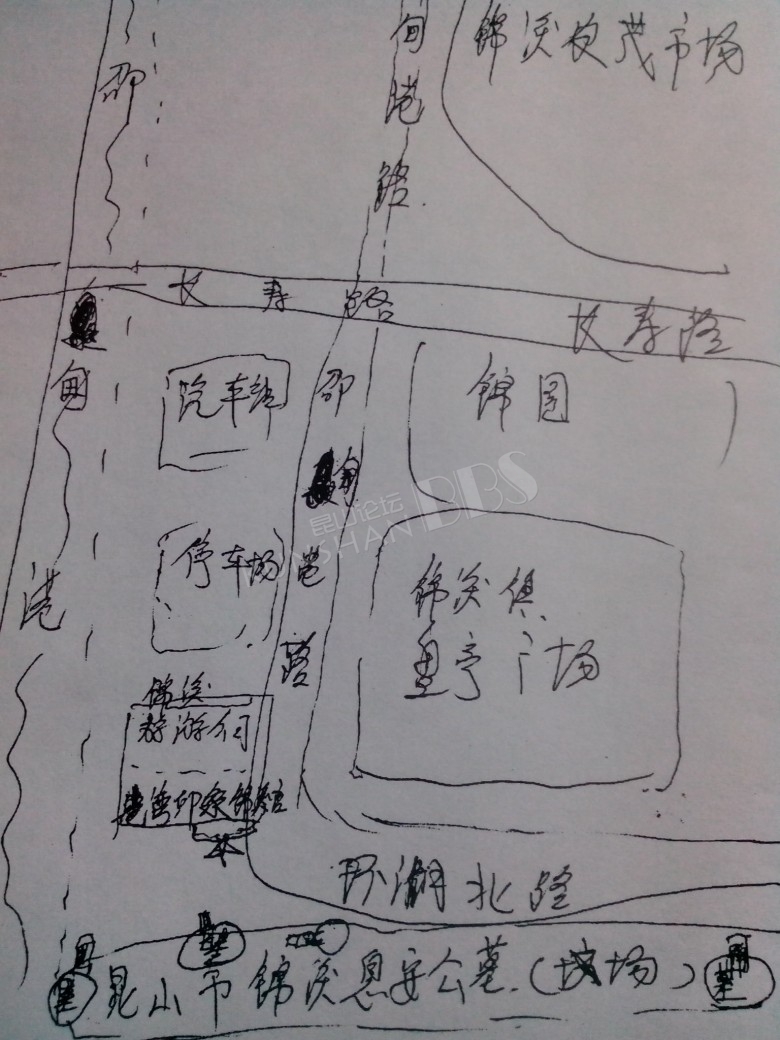 锦溪农茂市场
邵甸港
甸港路
长寿路
长寿路
汽车站
锦园
邵甸港路
停车场
昆山论坛
KUNSHAN BBS
锦溪俱
里亭广场
锦溪
旅游公司
印象锦溪
环湖北路
昆山市锦溪息安公墓（坟场）